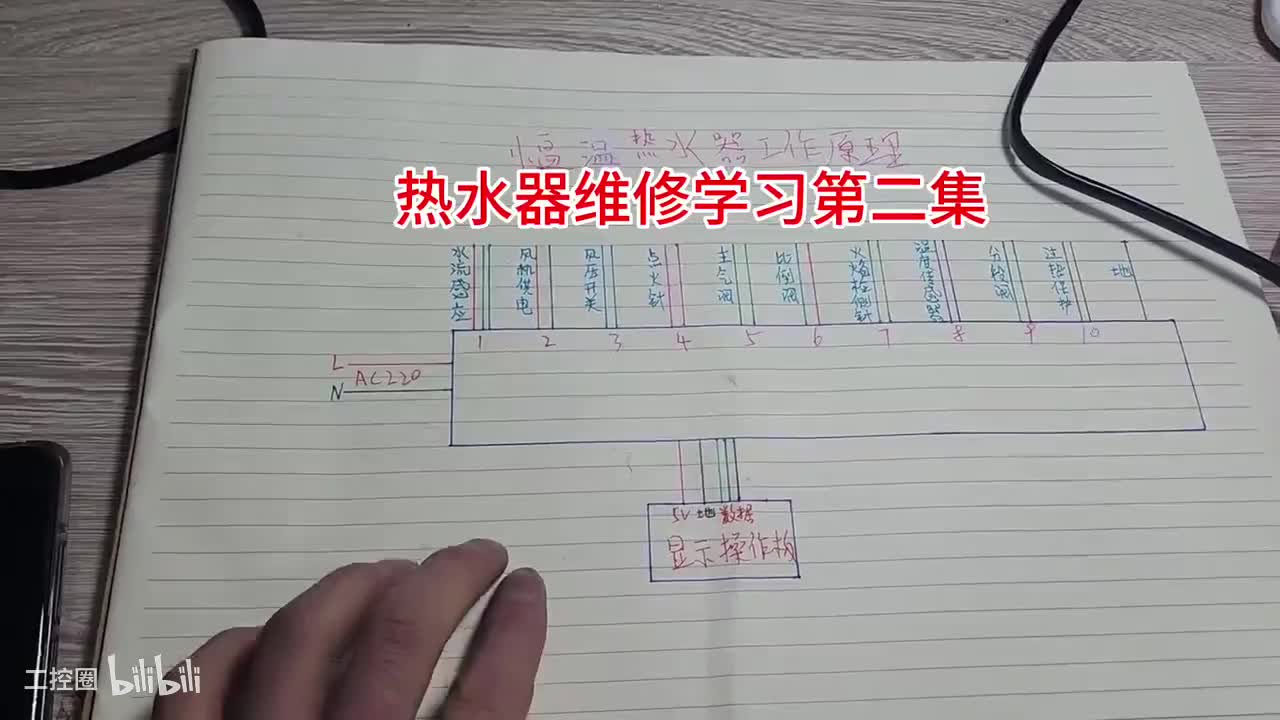 恒温热水器工作原理
热水器维修学习第二集
水流感应
风机供电
风压开关
点火针
主气阀
比例阀
火焰检侧针
温度传感器
分段阀
过热保护
地
1 2 3 4 5 6 7 8 9 10
L
AC220
N
5V 地 数据
显示操作板
工控圈 bilibili